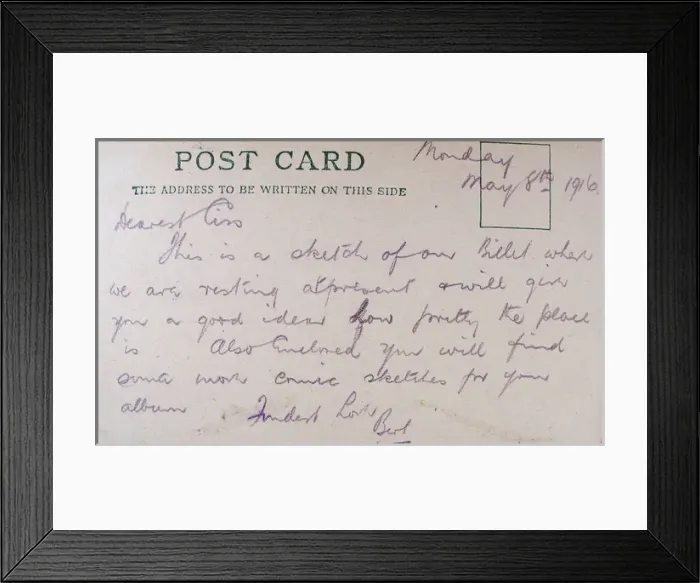 POST CARD
THE ADDRESS TO BE WRITTEN ON THIS SIDE
Monday
May 8th 1916.
Dearest Ciss
This is a sketch of our Billet where
we are resting at present & will give
you a good idear how pretty the place
is. Also Enclosed you will find
some more comic sketches for your
album Fondest Love
Bert